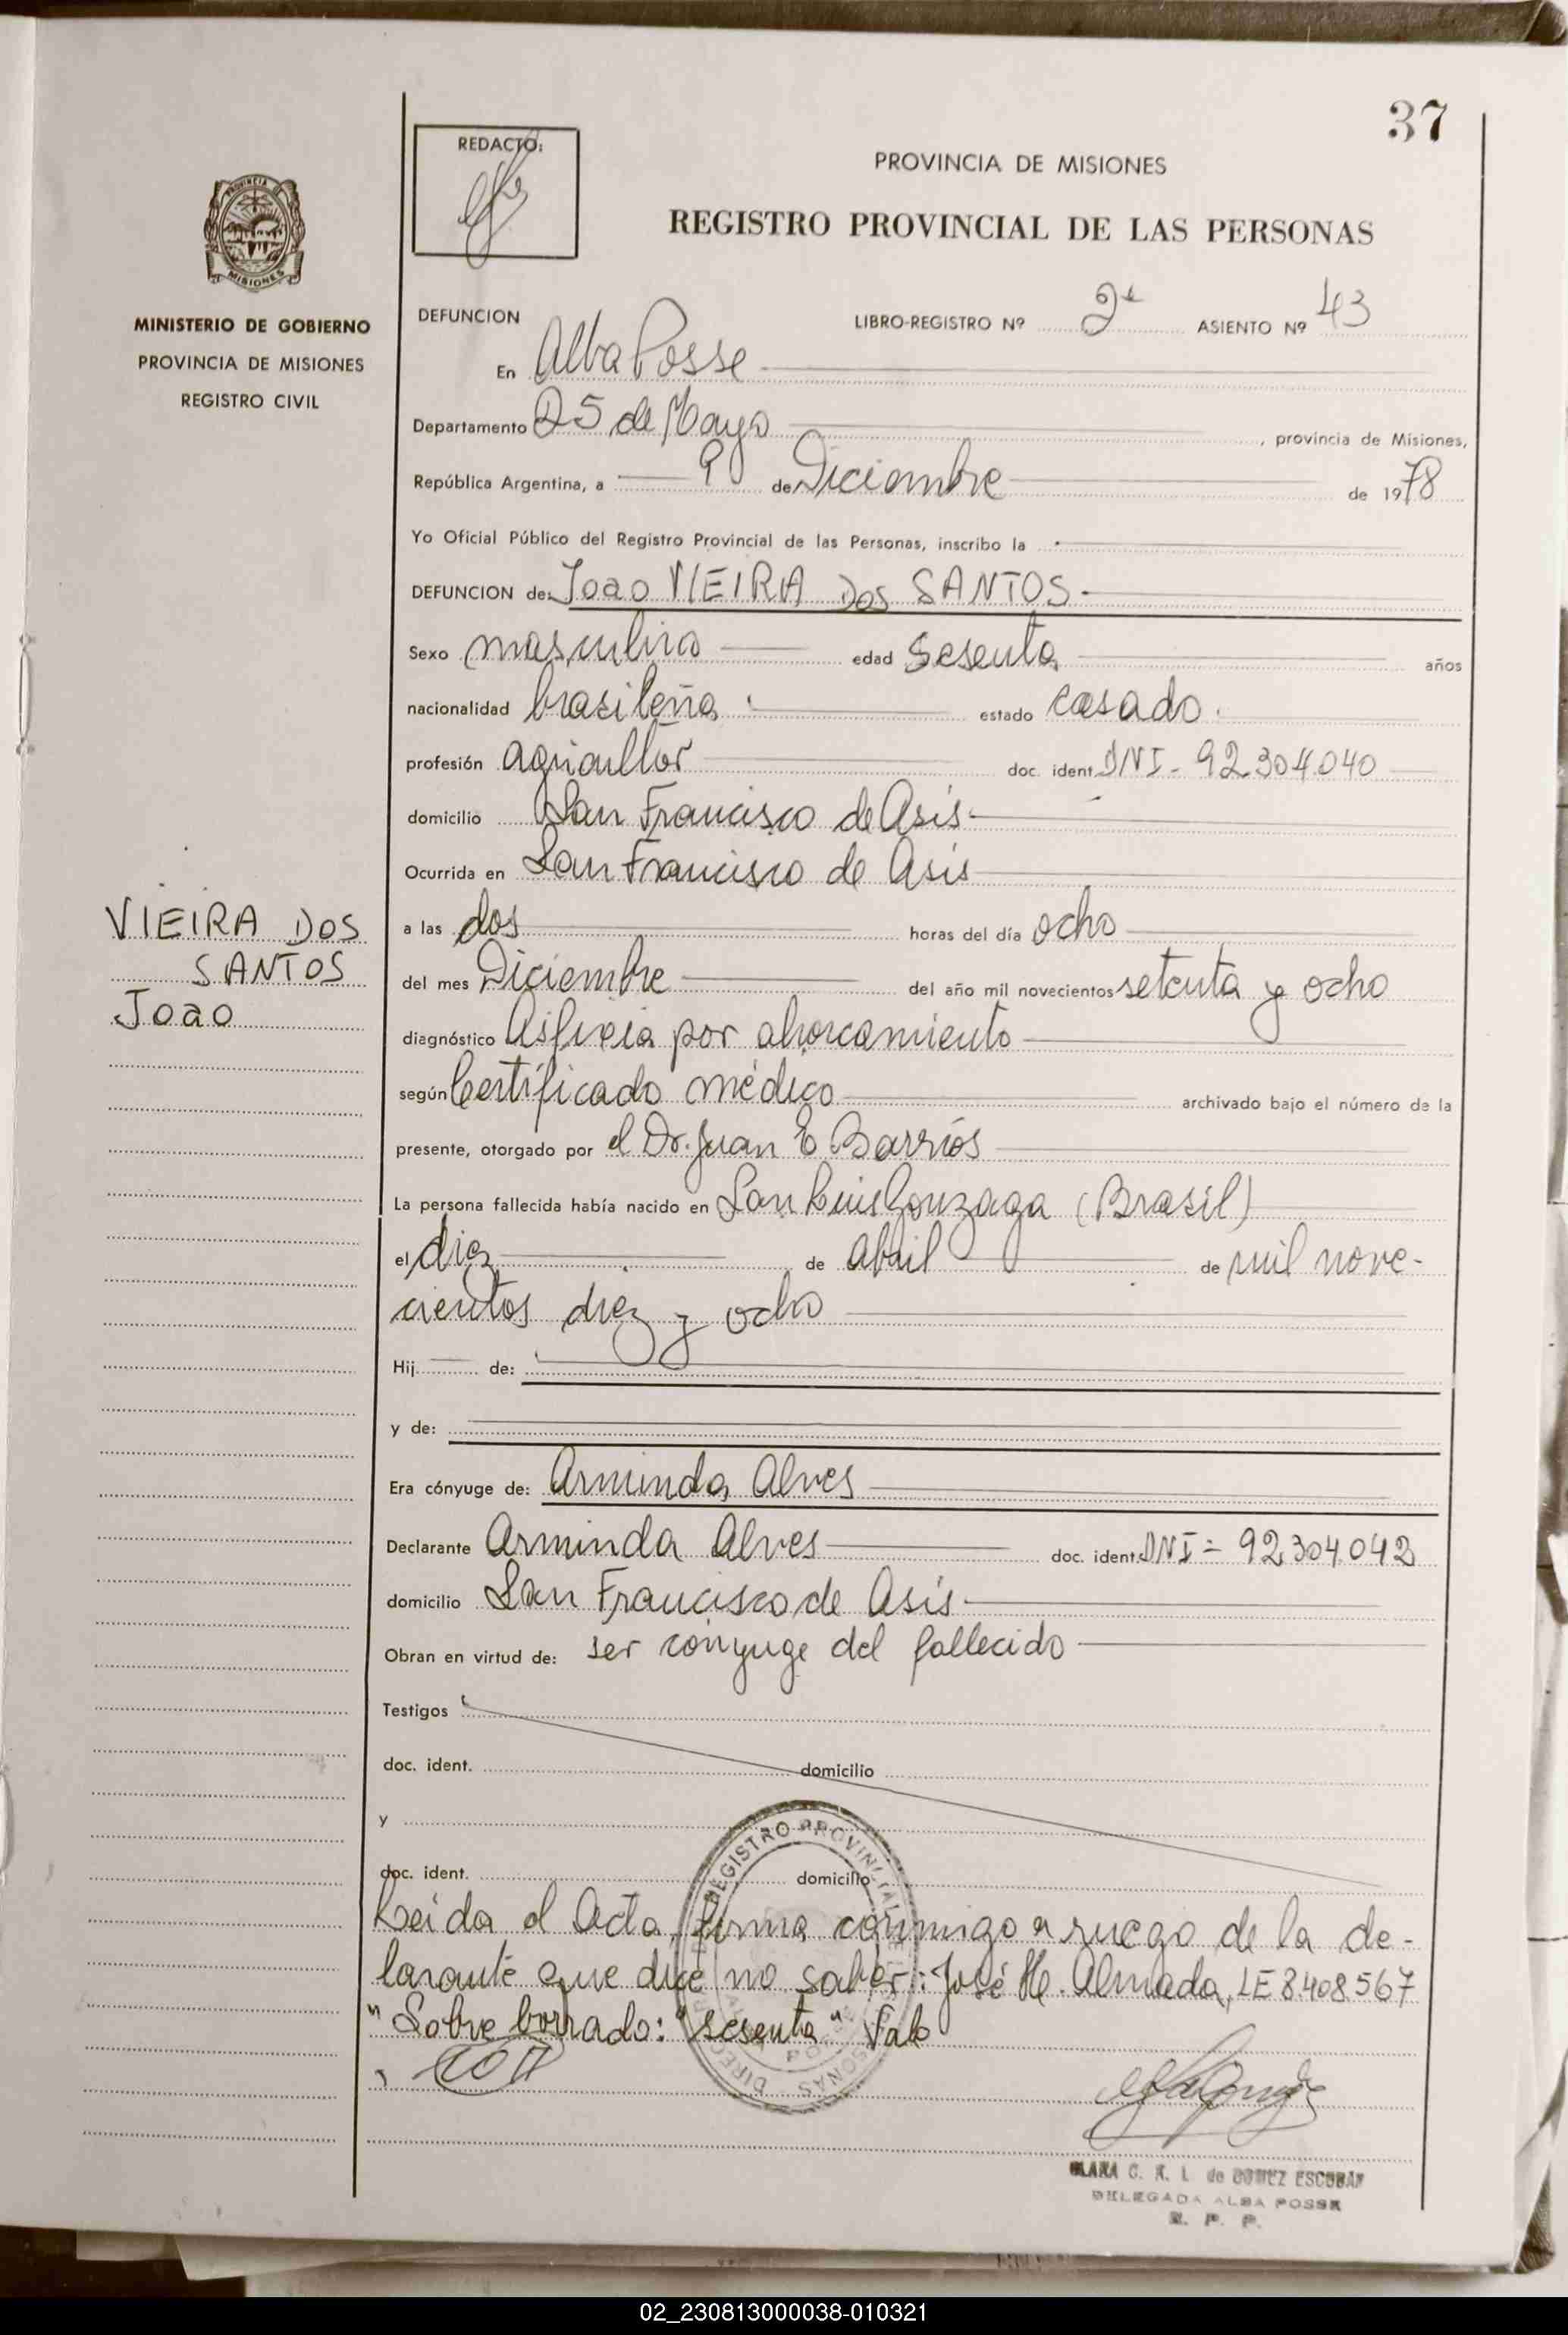 37
REDACTO:
PROVINCIA DE MISIONES
REGISTRO PROVINCIAL DE LAS PERSONAS
PROVINCIA DE
MISIONES
MINISTERIO DE GOBIERNO
PROVINCIA DE MISIONES
REGISTRO CIVIL
DEFUNCION LIBRO-REGISTRO Nº 2º ASIENTO Nº 43
En Alba Posse
Departamento 25 de Mayo, provincia de Misiones,
República Argentina, a 9 de Diciembre de 1978
Yo Oficial Público del Registro Provincial de las Personas, inscribo la
DEFUNCION de: Joao VIEIRA DOS SANTOS.
Sexo masculino edad Sesenta años
nacionalidad brasileña estado casado.
profesión agricultor doc. ident. DNI - 92.304.040
domicilio San Francisco de Asís
Ocurrida en San Francisco de Asís
a las dos horas del día ocho
del mes Diciembre del año mil novecientos setenta y ocho
diagnóstico Asfixia por ahorcamiento
según Certificado médico archivado bajo el número de la
presente, otorgado por el Dr. Juan E Barrios
La persona fallecida había nacido en San Luis Gonzaga (Brasil)
el diez de abril de mil nove-
cientos diez y ocho
Hij de:
y de:
Era cónyuge de: Arminda Alves
Declarante Arminda Alves doc. ident. DNI = 92.304.042
domicilio San Francisco de Asís
Obran en virtud de: ser cónyuge del fallecido
Testigos
doc. ident. domicilio
y
doc. ident. domicilio
Leída el Acta, firma conmigo a ruego de la de-
larante que dice no saber: José H. Almada, LE 8.408.567
"Sobre borrado: "sesenta" Vale
VIEIRA DOS
SANTOS
Joao
REGISTRO PROVINCIAL DE
PERSONAS
DIREC
POSSE
C. R. L de GOMEZ ESCOBAR
DELEGADA ALBA POSSE
R. P. P.
02_230813000038-010321